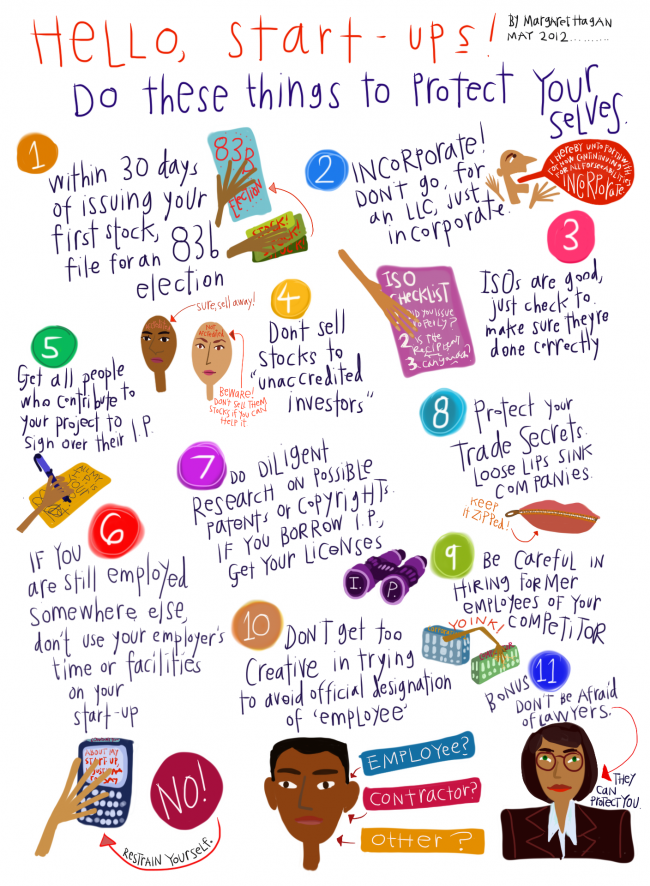 HELLO, START-UPS!
BY MARGARET HAGAN
MAY 2012..........
DO these things to PROTECT YOUR
SELVES.
1
within 30 days
of issuing your
first stock,
file for an 83b
election
83B
ELECTION
STOCK!
STOCK!
2
INCORPORATE!
DON'T go, for
an LLC, just
incorporate.
I HEREBY UNTO FORTHWITH
INCORPORATE
3
ISOs are good,
just check to
make sure theyre
done correctly
ISO
CHECKLIST
DID YOU ISSUE
PROPERLY?
2. IS THE
RECIPIENT
3.
4
Dont sell
stocks to
"unaccredited
investors"
sure, sell away!
NOT
BEWARE!
DON'T SELL THEM
STOCKS IF YOU CAN
HELP IT
5
Get all people
who contribute to
your project to
sign over their I.P.
ALL MY
I.P. IS
YOUR
6
IF YOU
are still employed
somewhere else,
don't use your employer's
time or facilities
on your
start-up
ABOUT MY
START UP,
NO!
RESTRAIN YOURSELF.
7
DO DILIGENT
RESEARCH ON POSSIBLE
PATENTS OR COPYRIGHTS.
IF YOU BORROW I.P.,
GET YOUR LICENSES
I. P.
8
PROTECT your
TRADE SECRETS.
LOOSE LIPS SINK
COMPANIES.
KEEP
IT ZIPPED!
9
BE CAREFUL IN
HIRING FORMER
EMPLOYEES OF YOUR
COMPETITOR
YOINK!
10
DON'T get too
creative in trying
to avoid official designation
of 'employee'
EMPLOYEE?
CONTRACTOR?
OTHER?
11
BONUS
DON'T BE AFRAID
OF LAWYERS.
THEY
CAN
PROTECT YOU.